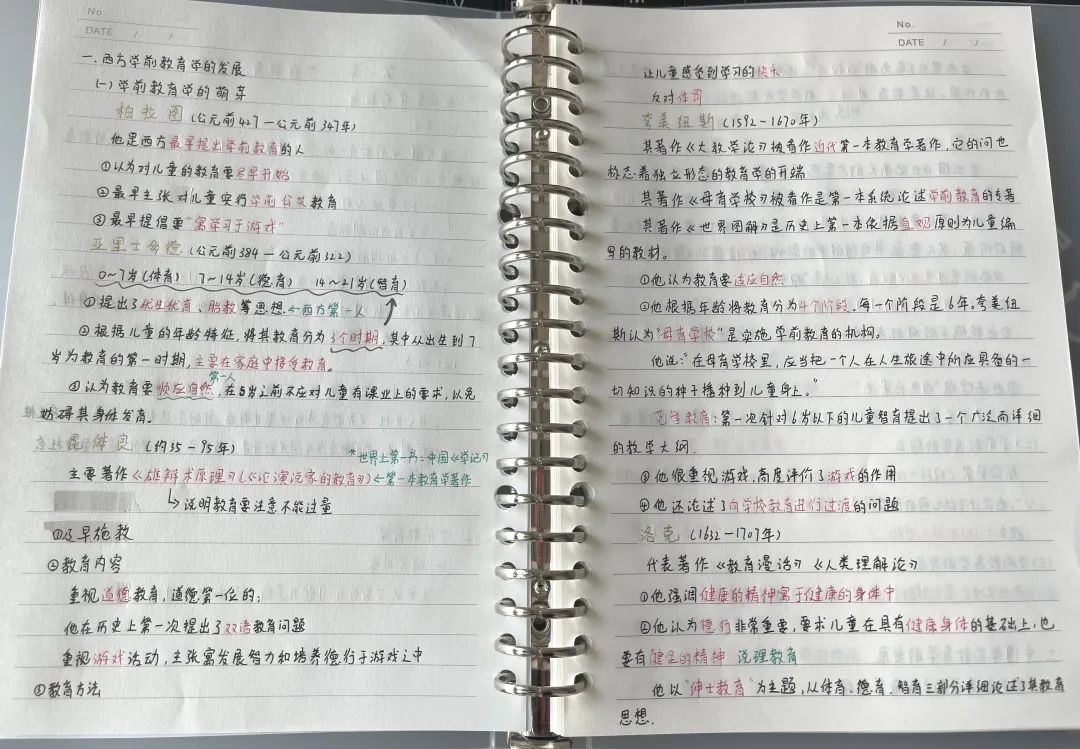 No
DATE / /
一.西方学前教育学的发展
(一)学前教育学的萌芽
柏拉图(公元前427—公元前347年)
他是西方最早提出学前教育的人
①认为对儿童的教育要尽早开始
②最早主张对儿童实行学前公共教育
③最早提倡要"寓学习于游戏"
亚里士多德(公元前384—公元前322)
0~7岁(体育) 7~14岁(德育) 14~21岁(智育)
①提出了优生优育、胎教等思想←西方第一人
②根据儿童的年龄特征,将其教育分为3个时期,其中从出生到7
岁为教育的第一时期,主要在家庭中接受教育。
第一人
③认为教育要顺应自然,在5岁之前不应对儿童有课业上的要求,以免
妨碍其身体发育。
昆体良(约35—95年)
*世界上第一为:中国《学记》
主要著作《雄辩术原理》(《论演说家的教育》)←第一本教育学著作
↳说明教育要注意不能过量
①及早施教
②教育内容
重视道德教育,道德第一位的;
他在历史上第一次提出了双语教育问题
重视游戏活动,主张寓发展智力和培养德行于游戏之中
③教育方法
No.
DATE / /
让儿童感觉到学习的快乐
反对体罚
夸美纽斯(1592—1670年)
其著作《大教学论》被看作近代第一本教育学著作,它的问世
标志着独立形态的教育学的开端
其著作《母育学校》被看作是第一本系统论述学前教育的专著
其著作《世界图解》是历史上第一本依据直观原则为儿童编
写的教材。
①他认为教育要适应自然
②他根据年龄将教育分为4个阶段,每一个阶段是6年。夸美纽
斯认为"母育学校"是实施学前教育的机构。
他说:"在母育学校里,应当把一个人在人生旅途中所应具备的一
切知识的种子播种到儿童身上。"
智育教育:第一次针对6岁以下的儿童智育提出了一个广泛而详细
的教学大纲.
③他很重视游戏,高度评价了游戏的作用
④他还论述了向学校教育进行过渡的问题
洛克(1632—1707年)
代表著作《教育漫话》《人类理解论》
①他强调健康的精神寓于健康的身体中
②他认为德行非常重要,要求儿童在具有健康身体的基础上,也
要有健全的精神 说理教育
他以"绅士教育"为主题,从体育、德育、智育三部分详细论述了其教育
思想.